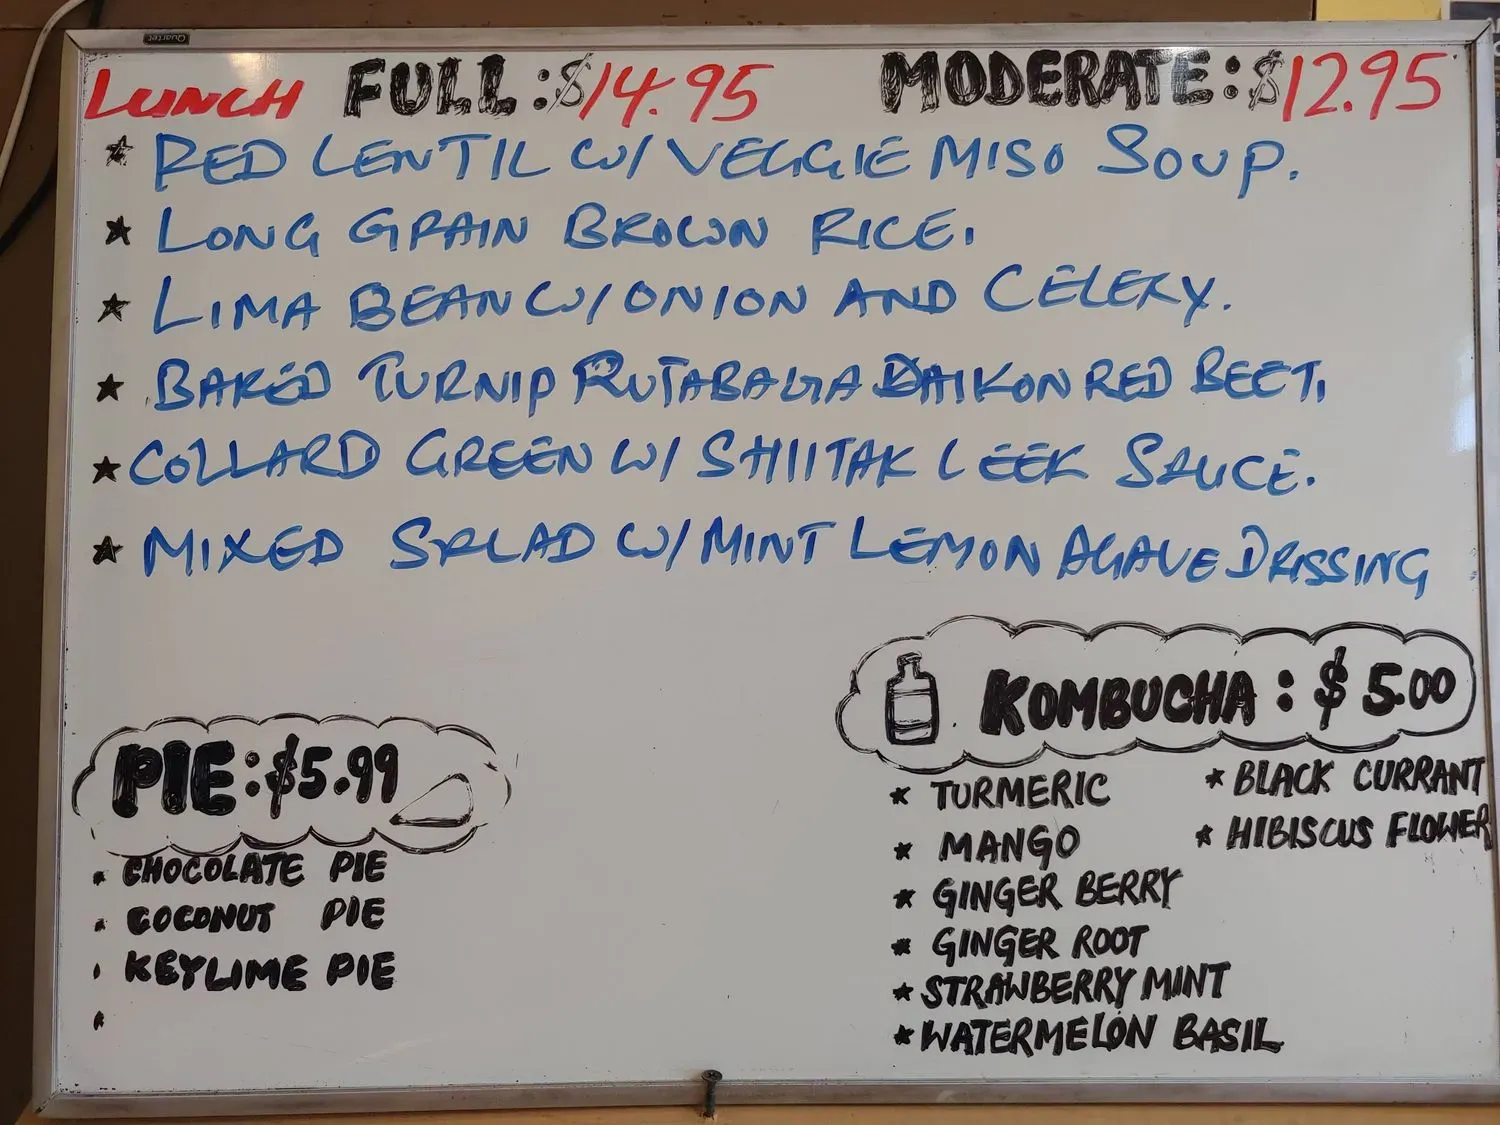 Quartet
LUNCH FULL: $14.95 MODERATE: $12.95
★ RED LENTIL W/ VEGGIE MISO SOUP.
★ LONG GRAIN BROWN RICE.
★ LIMA BEAN W/ ONION AND CELERY.
★ BAKED TURNIP RUTABAGA DAIKON RED BEET.
★ COLLARD GREEN W/ SHIITAK LEEK SAUCE.
★ MIXED SALAD W/ MINT LEMON AGAVE DRISSING
KOMBUCHA: $5.00
★ TURMERIC
★ MANGO
★ GINGER BERRY
★ GINGER ROOT
★ STRAWBERRY MINT
★ WATERMELON BASIL
★ BLACK CURRANT
★ HIBISCUS FLOWER
PIE: $5.99
★ CHOCOLATE PIE
★ COCONUT PIE
• KEYLIME PIE
★